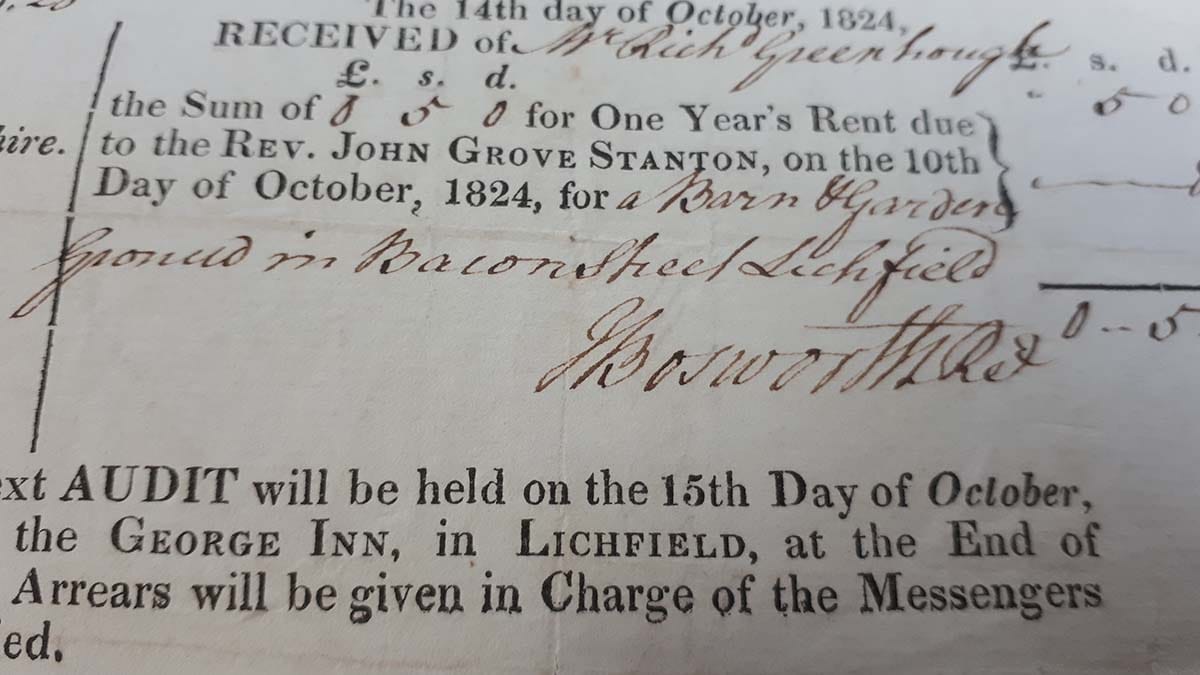 The 14th day of October, 1824,
RECEIVED of Mr Richd Greenhough £. s. d.
£. s. d.
the Sum of 0 5 0 for One Year's Rent due " 5 0
hire. to the REV. JOHN GROVE STANTON, on the 10th
Day of October, 1824, for a Barn & Garden
Ground in Bacon Street Lichfield
0 -- 5
JBosworth
ext AUDIT will be held on the 15th Day of October,
the GEORGE INN, in LICHFIELD, at the End of
Arrears will be given in Charge of the Messengers
ed.